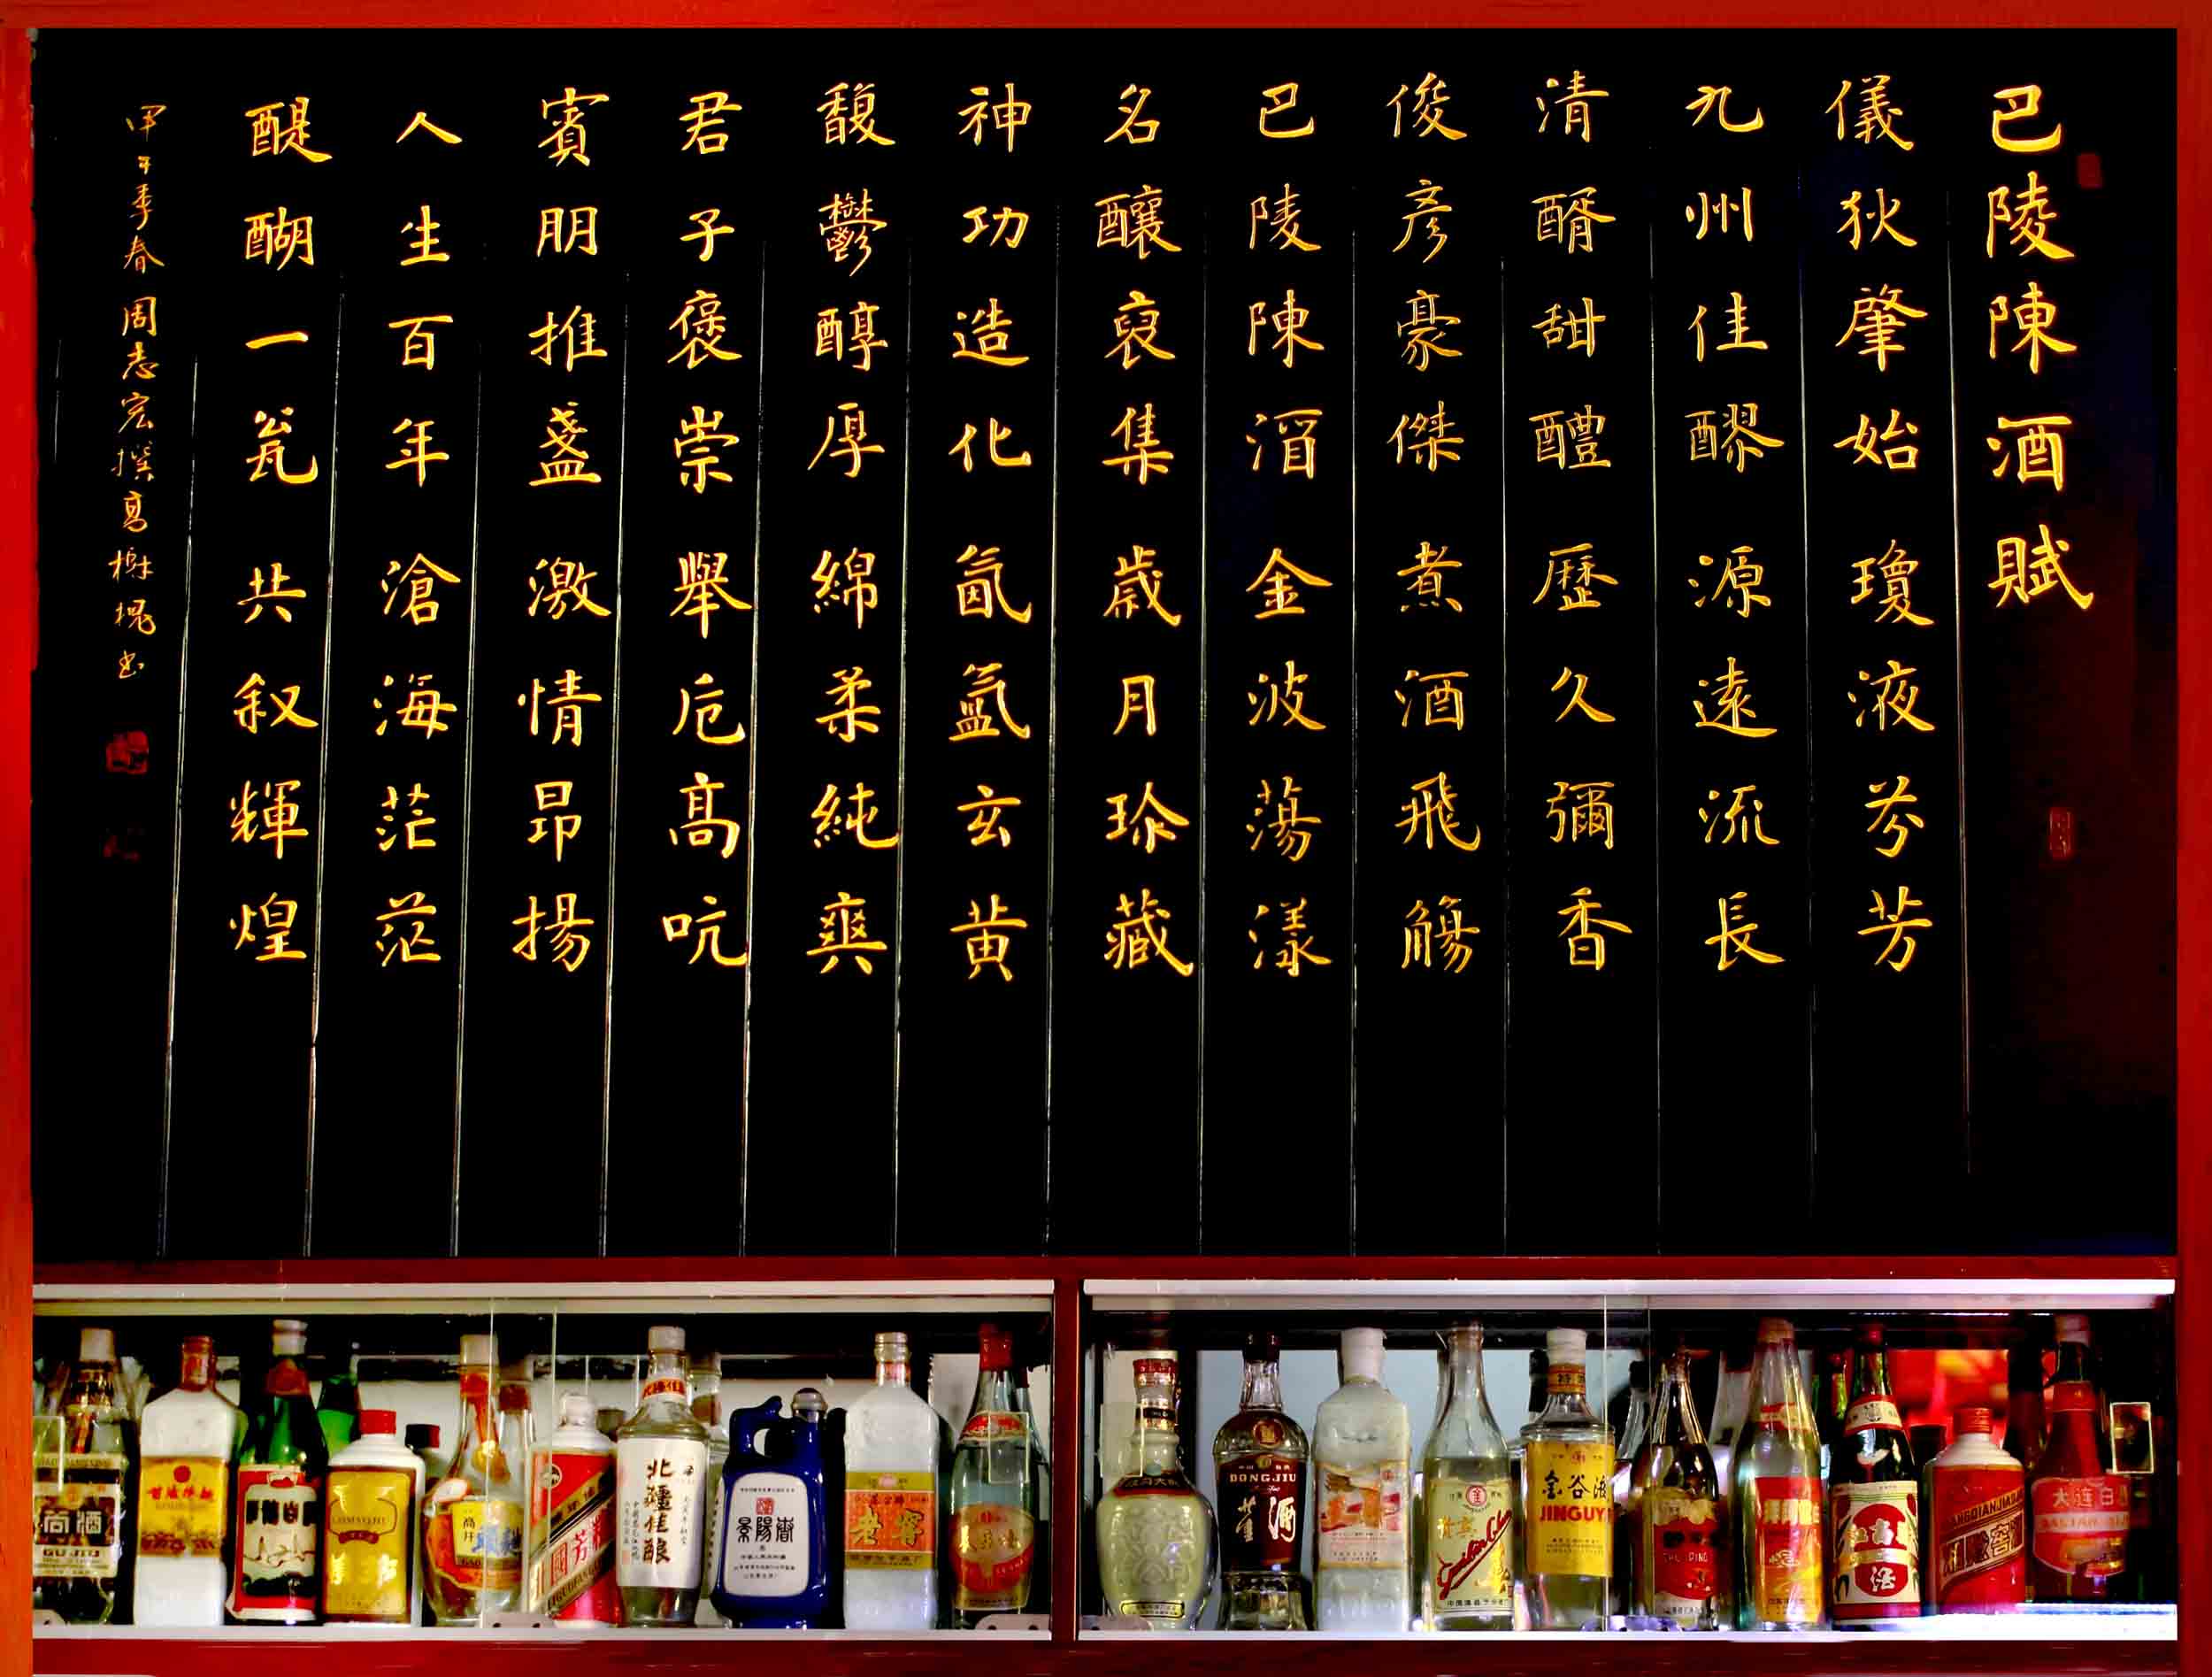 巴陵陳酒賦
儀狄肇始瓊液芬芳
九州佳醪源遠流長
清醑甜醴歷久彌香
俊彥豪傑煮酒飛觴
巴陵陳湑金波蕩漾
名釀裒集歲月珍藏
神功造化氤氳玄黄
馥鬱醇厚綿柔純爽
君子褒崇舉卮高吭
賓朋推盞激情昂揚
人生百年滄海茫茫
醍醐一瓮共叙輝煌
甲午季春周志宏撰高樹槐书
GUJIU
北疆佳釀
景陽春
老窖
DONGJIU
董酒
金谷液
JINGUY
大连白